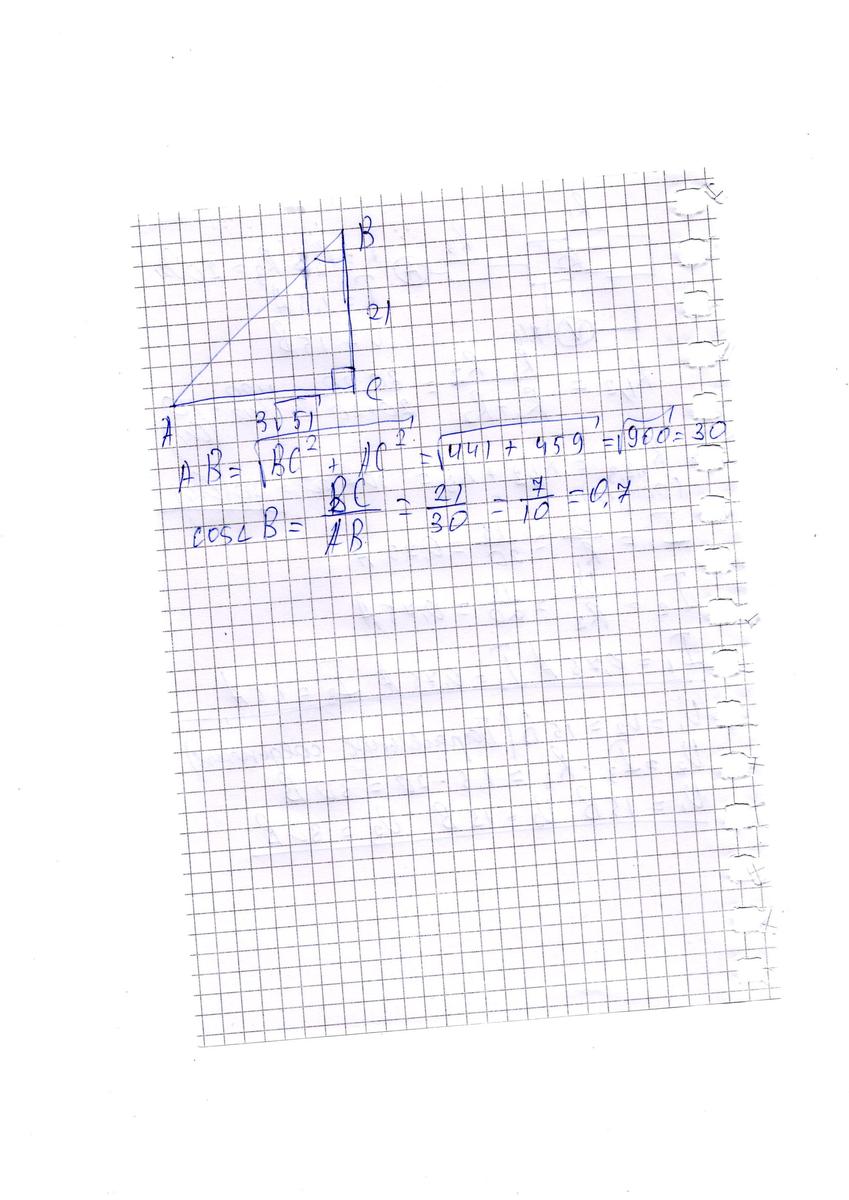 B
21
A
C
3√51
AB = √(BC² + AC²) = √(441 + 459) = √900 = 30
cos∠B = BC/AB = 21/30 = 7/10 = 0,7